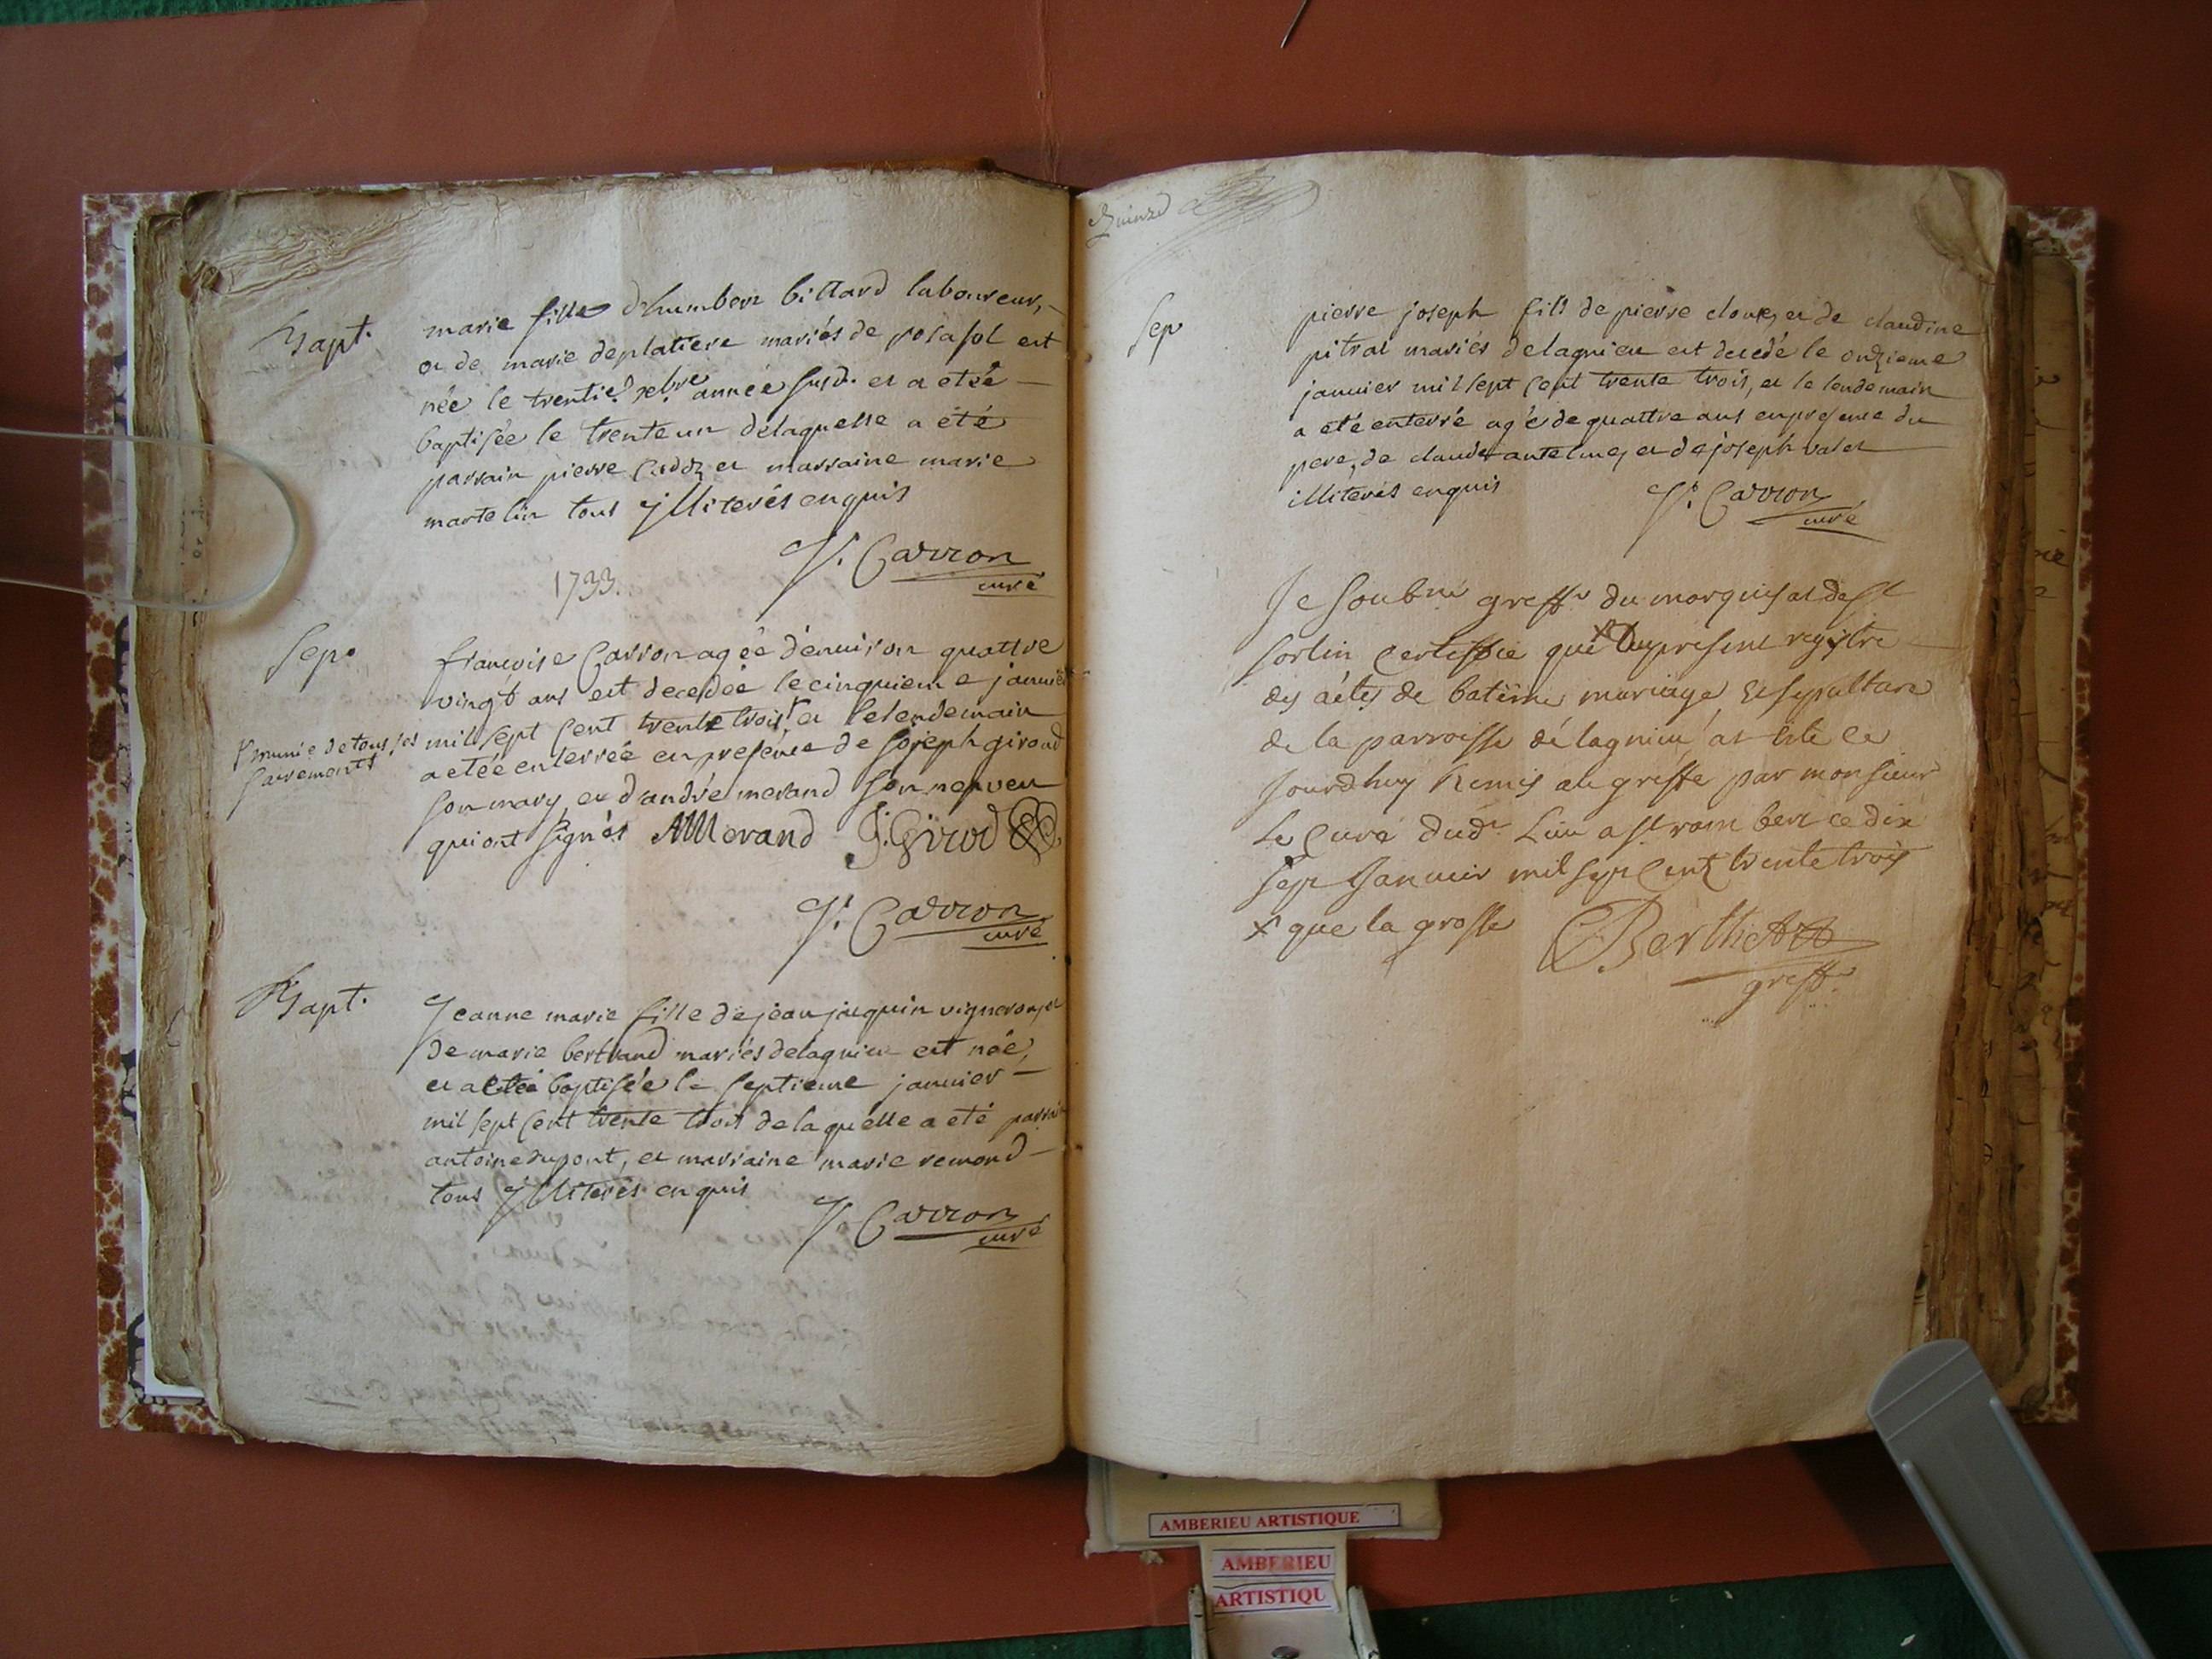 Bapt.
marie fille d'humbert billard laboureur,
et de marie deplatiere mariés de posafol est
née le trentie. xbre année susd. et a etée
baptisée le trente un delaquelle a été
parrain pierre et marraine marie
martelin tous illiterés enquis
J. Carron
curé
1733.
Sep.
françoise Carron agée d'environ quattre
vingt ans est decedée le cinquieme janvier
mil sept cent trente trois et le lendemain
munie de tous ses
sacrements
a etée enterrée en presence de joseph giroud
son mary et d'andré merand son neuveu
qui ont signés AMerand J. Girod
J. Carron
curé
Bapt.
Jeanne marie fille de jean jacquin vigneron, et
de marie bertrand mariés delagnieu est née,
et a etée baptisée le septieme janvier
mil sept cent trente trois de laquelle a eté parrain
antoine dupont, et marraine marie remond
tous illiterés enquis
J. Carron
curé
Quinze
Sep.
pierre joseph fils de pierre et de claudine
pitrat mariés delagnieu est decedé le onzieme
janvier mil sept cent trente trois, et le lendemain
a été enterré agé de quattre ans en presence du
pere, de claude antelme, et de joseph valet
illiterés enquis
J. Carron
curé
Je soubné greffr du marquisat de St
sorlin certiffie que x du present registre
des actes de batême mariage et sepulture
de la parroisse de lagnieu at esté ce
jourdhuy Remis au greffe par monsieur
le curé dudt Lieu a St rambert ce dix
sept Janvier mil sept cent trente trois
x que la grosse
Berthet
greffr
AMBERIEU ARTISTIQUE
AMBERIEU
ARTISTIQU